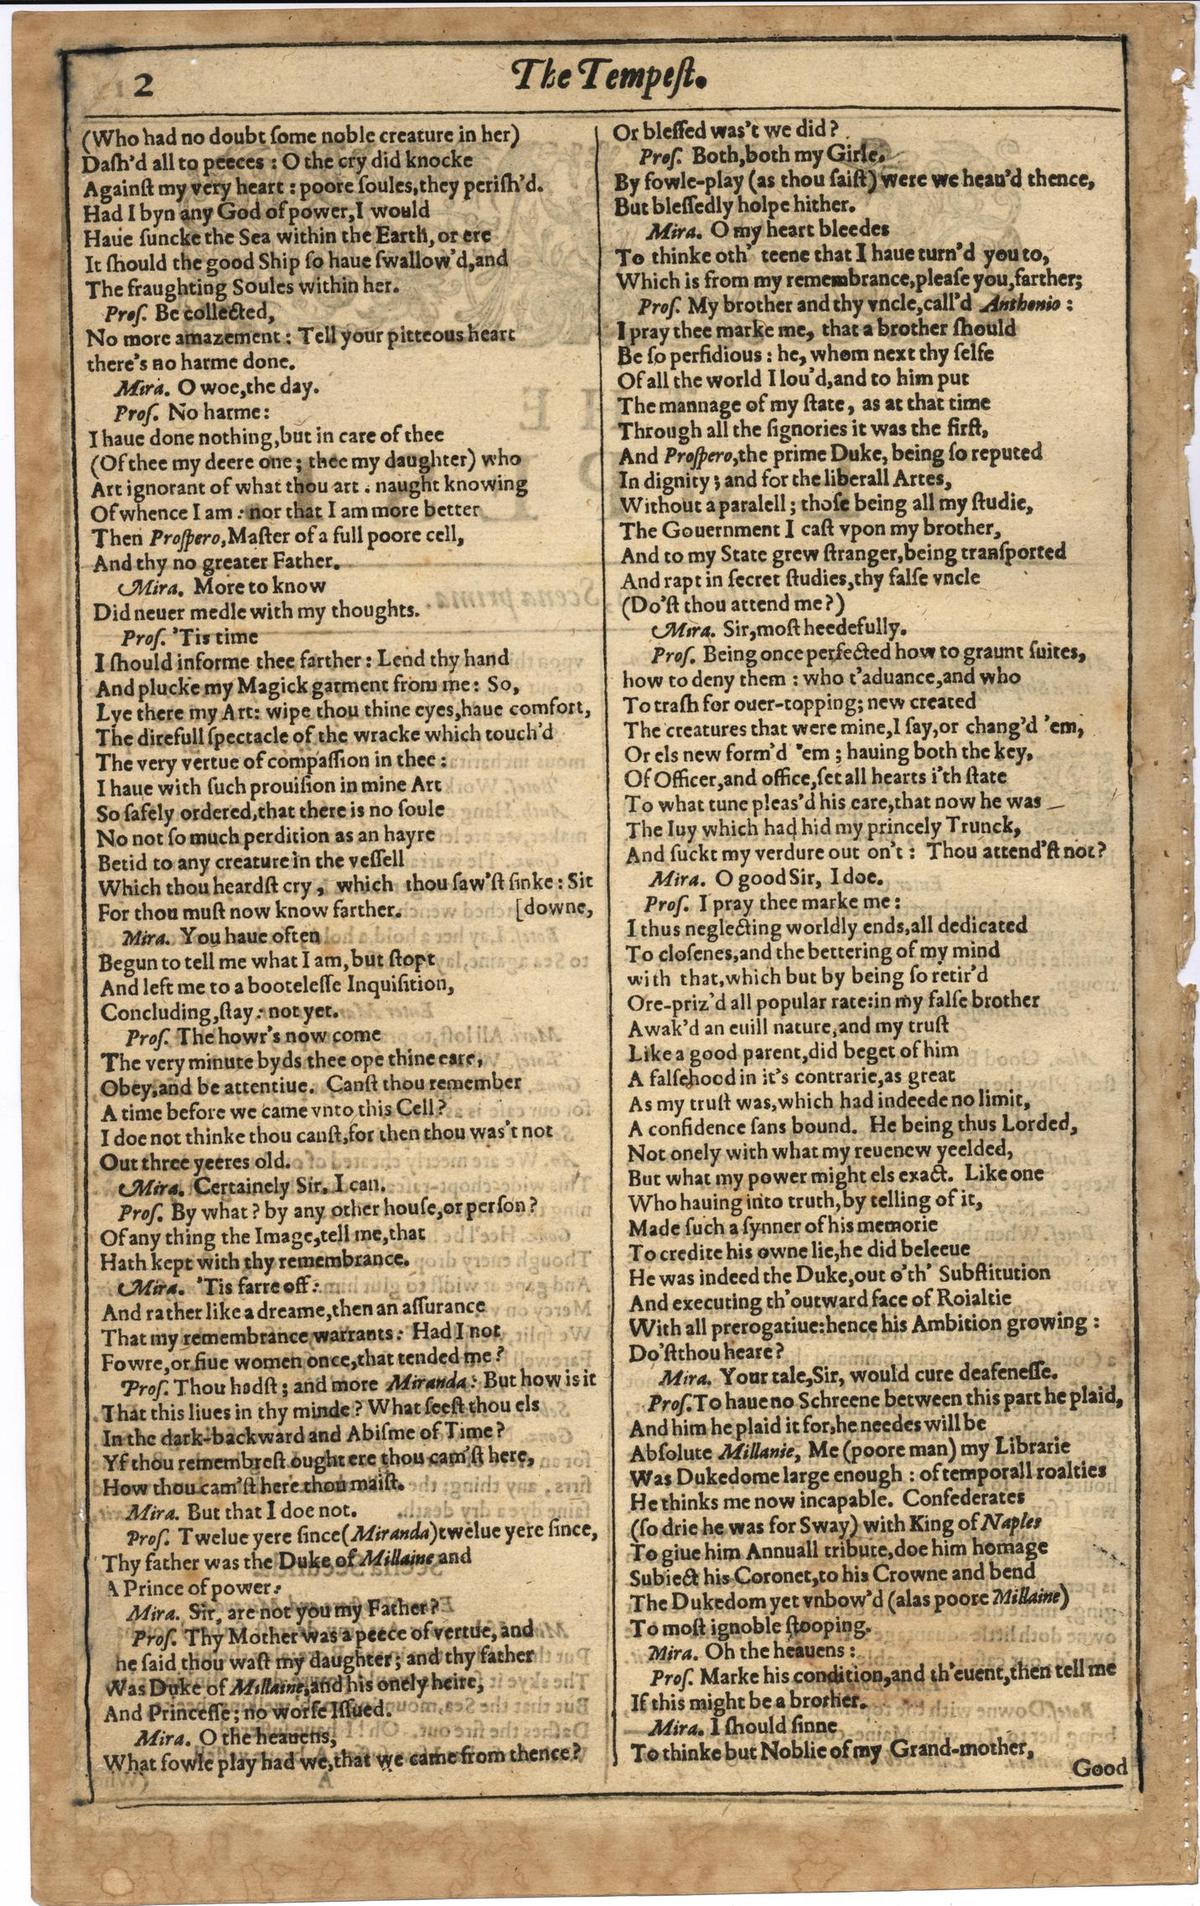 2
The Tempeſt.
(Who had no doubt ſome noble creature in her)
Daſh'd all to peeces : O the cry did knocke
Againſt my very heart : poore ſoules, they periſh'd.
Had I byn any God of power, I would
Haue ſuncke the Sea within the Earth, or ere
It ſhould the good Ship ſo haue ſwallow'd, and
The fraughting Soules within her.
Proſ. Be collected,
No more amazement : Tell your pitteous heart
there's no harme done.
Mira. O woe, the day.
Proſ. No harme :
I haue done nothing, but in care of thee
(Of thee my deere one ; thee my daughter) who
Art ignorant of what thou art . naught knowing
Of whence I am : nor that I am more better
Then Proſpero, Maſter of a full poore cell,
And thy no greater Father.
Mira. More to know
Did neuer medle with my thoughts.
Proſ. 'Tis time
I ſhould informe thee farther : Lend thy hand
And plucke my Magick garment from me : So,
Lye there my Art : wipe thou thine eyes, haue comfort,
The direfull ſpectacle of the wracke which touch'd
The very vertue of compaſſion in thee :
I haue with ſuch prouiſion in mine Art
So ſafely ordered, that there is no ſoule
No not ſo much perdition as an hayre
Betid to any creature in the veſſell
Which thou heardſt cry, which thou ſaw'ſt ſinke : Sit
For thou muſt now know farther. [downe,
Mira. You haue often
Begun to tell me what I am, but ſtopt
And left me to a booteleſſe Inquiſition,
Concluding, ſtay : not yet.
Proſ. The howr's now come
The very minute byds thee ope thine eare,
Obey, and be attentiue. Canſt thou remember
A time before we came vnto this Cell ?
I doe not thinke thou canſt, for then thou was't not
Out three yeeres old.
Mira. Certainely Sir, I can.
Proſ. By what ? by any other houſe, or perſon ?
Of any thing the Image, tell me, that
Hath kept with thy remembrance.
Mira. 'Tis farre off :
And rather like a dreame, then an aſſurance
That my remembrance warrants : Had I not
Fowre, or fiue women once, that tended me ?
Proſ. Thou hadſt ; and more Miranda : But how is it
That this liues in thy minde ? What ſeeſt thou els
In the dark-backward and Abiſme of Time ?
Yf thou remembreſt ought ere thou cam'ſt here,
How thou cam'ſt here thou maiſt.
Mira. But that I doe not.
Proſ. Twelue yere ſince (Miranda) twelue yere ſince,
Thy father was the Duke of Millaine and
A Prince of power :
Mira. Sir, are not you my Father ?
Proſ. Thy Mother was a peece of vertue, and
he ſaid thou waſt my daughter ; and thy father
Was Duke of Millaine, and his onely heire,
And Princeſſe ; no worſe Iſſued.
Mira. O the heauens,
What fowle play had we, that we came from thence ?
Or bleſſed was't we did ?
Proſ. Both, both my Girle.
By fowle-play (as thou ſaiſt) were we heau'd thence,
But bleſſedly holpe hither.
Mira. O my heart bleedes
To thinke oth' teene that I haue turn'd you to,
Which is from my remembrance, pleaſe you, farther ;
Proſ. My brother and thy vncle, call'd Anthonio :
I pray thee marke me, that a brother ſhould
Be ſo perfidious : he, whom next thy ſelfe
Of all the world I lou'd, and to him put
The mannage of my ſtate, as at that time
Through all the ſignories it was the firſt,
And Proſpero, the prime Duke, being ſo reputed
In dignity ; and for the liberall Artes,
Without a paralell ; thoſe being all my ſtudie,
The Gouernment I caſt vpon my brother,
And to my State grew ſtranger, being tranſported
And rapt in ſecret ſtudies, thy falſe vncle
(Do'ſt thou attend me ?)
Mira. Sir, moſt heedefully.
Proſ. Being once perfected how to graunt ſuites,
how to deny them : who t'aduance, and who
To traſh for ouer-topping ; new created
The creatures that were mine, I ſay, or chang'd 'em,
Or els new form'd 'em ; hauing both the key,
Of Officer, and office, ſet all hearts i'th ſtate
To what tune pleas'd his eare, that now he was
The Iuy which had hid my princely Trunck,
And ſuckt my verdure out on't : Thou attend'ſt not ?
Mira. O good Sir, I doe.
Proſ. I pray thee marke me :
I thus neglecting worldly ends, all dedicated
To cloſenes, and the bettering of my mind
with that, which but by being ſo retir'd
Ore-priz'd all popular rate : in my falſe brother
Awak'd an euill nature, and my truſt
Like a good parent, did beget of him
A falſehood in it's contrarie, as great
As my truſt was, which had indeede no limit,
A confidence ſans bound. He being thus Lorded,
Not onely with what my reuenew yeelded,
But what my power might els exact. Like one
Who hauing into truth, by telling of it,
Made ſuch a ſynner of his memorie
To credite his owne lie, he did beleeue
He was indeed the Duke, out o'th' Subſtitution
And executing th'outward face of Roialtie
With all prerogatiue : hence his Ambition growing :
Do'ſt thou heare ?
Mira. Your tale, Sir, would cure deafeneſſe.
Proſ. To haue no Schreene between this part he plaid,
And him he plaid it for, he needes will be
Abſolute Millanie, Me (poore man) my Librarie
Was Dukedome large enough : of temporall roalties
He thinks me now incapable. Confederates
(ſo drie he was for Sway) with King of Naples
To giue him Annuall tribute, doe him homage
Subiect his Coronet, to his Crowne and bend
The Dukedom yet vnbow'd (alas poore Millaine)
To moſt ignoble ſtooping.
Mira. Oh the heauens :
Proſ. Marke his condition, and th'euent, then tell me
If this might be a brother.
Mira. I ſhould ſinne
To thinke but Noblie of my Grand-mother,
Good